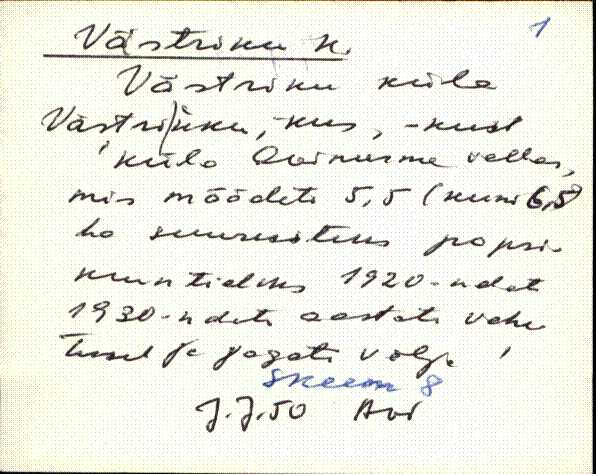 1
Västriku k.
Västriku küla
Västri/iku, -kus, -kust
'küla Avinurme vallas,
mis mõõdeti 5,5 (kuni 6,5)
ha suurusteks popsi-
kruntideks 1920-ndate
1930-ndate aastate vahe-
tusel ja jagati välja'
Skeem 8
J.J.50 Avi